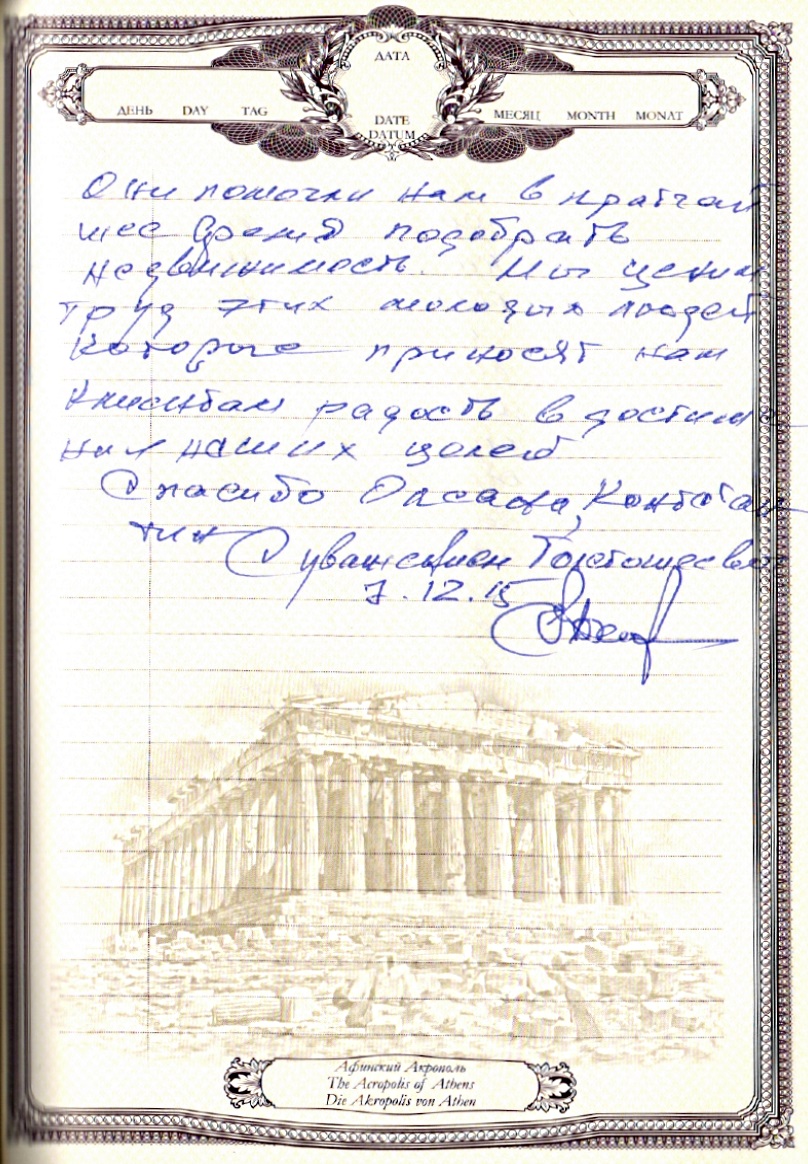 ДАТА
ДЕНЬ DAY TAG
DATE
DATUM
МЕСЯЦ MONTH MONAT
Они помогли нам в кратчай
шее время подобрать
недвижимость. Мы ценим
труд этих молодых людей
которые приносят нам
клиентам радость в достиже
нии наших целей
Спасибо Оксана, Констан
тин С уважением
7.12.15
Афинский Акрополь
The Acropolis of Athens
Die Akropolis von Athen